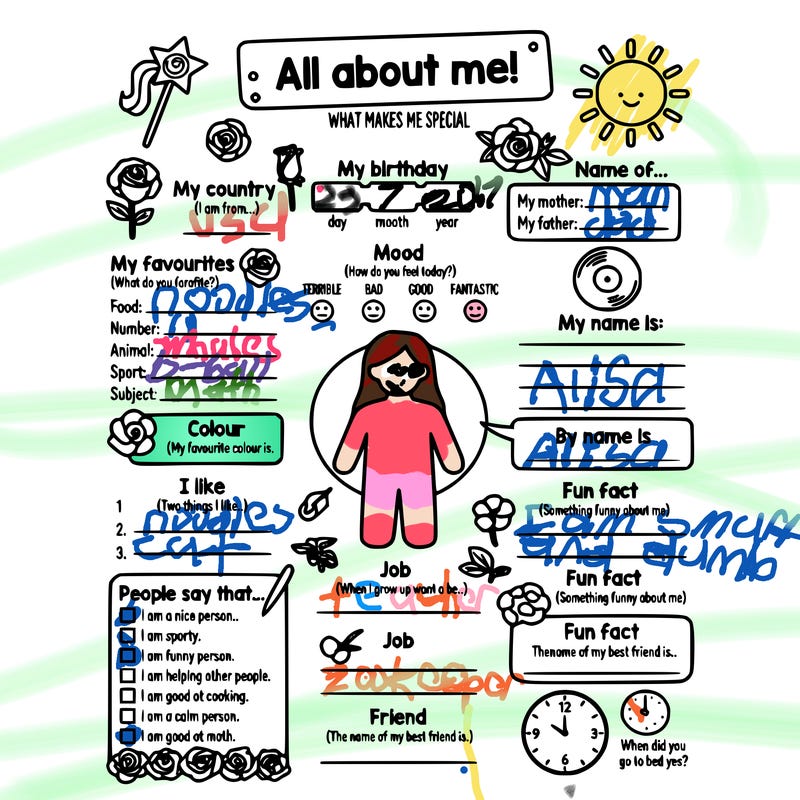 All about me!
WHAT MAKES ME SPECIAL
My country
(I am from...)
USA
My birthday
23 7 2017
day mooth year
Name of...
My mother: mom
My father: dad
My favourites
(What do you forafite?)
Food: noodles
Number:
Animal: whales
Sport: B-ball
Subject: math
Mood
(How do you feel today?)
TERRIBLE BAD GOOD FANTASTIC
My name Is:
Alisa
By name Is
Alisa
Colour
(My favourite colour is.
I like
(Two things I like..)
1
2. noodles
3. cat
Fun fact
(Something funny about me)
I am smart
and dumb
Fun fact
(Something funny about me)
Fun fact
Thename of my best friend is..
People say that...
I am a nice person..
I am sporty.
I am funny person.
I am helping other people.
I am good ot cooking.
I am a calm person.
I am good ot moth.
Job
(When I grow up want a be..)
teacher
Job
zookeeper
Friend
(The name of my best friend is.)
12
9 3
6
When did you
go to bed yes?